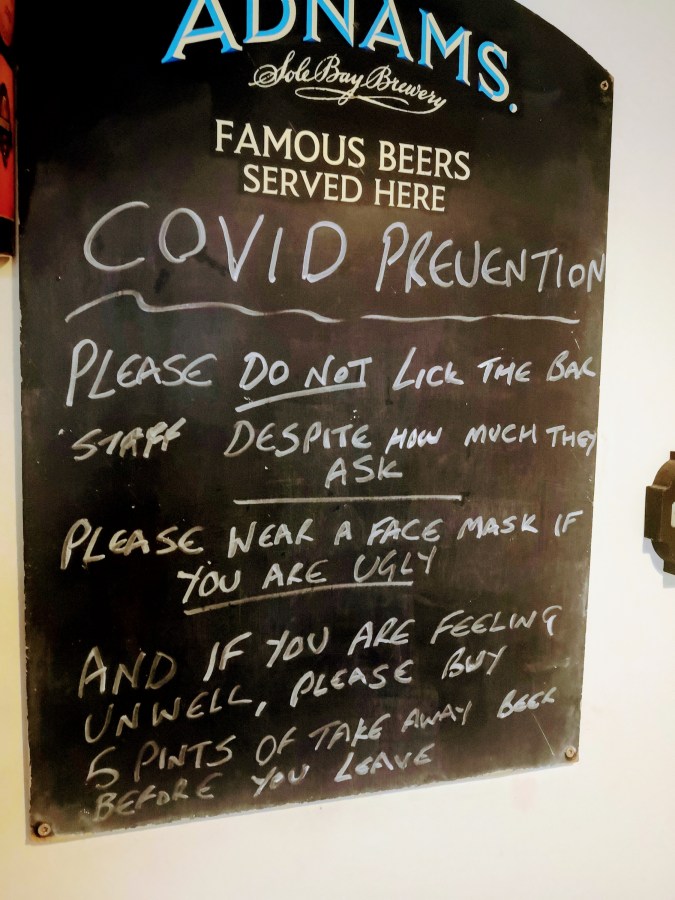 ADNAMS.
Sole Bay Brewery
FAMOUS BEERS
SERVED HERE
COVID PREVENTION
PLEASE DO NOT LICK THE BAR
STAFF DESPITE HOW MUCH THEY
ASK
PLEASE WEAR A FACE MASK IF
YOU ARE UGLY
AND IF YOU ARE FEELING
UNWELL, PLEASE BUY
5 PINTS OF TAKE AWAY BEER
BEFORE YOU LEAVE